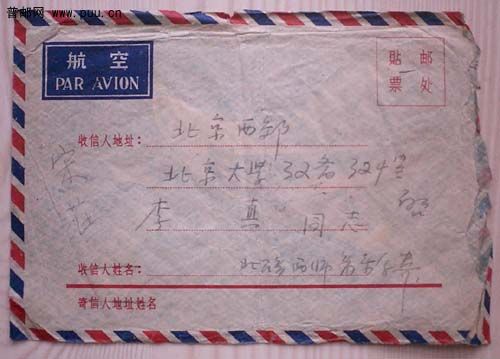 普邮网 www.puu.cn
航空
PAR AVION
貼邮
票处
收信人地址：北京西郊
北京大学32斋324室
李真同志 啓
收信人姓名：
寄信人地址姓名